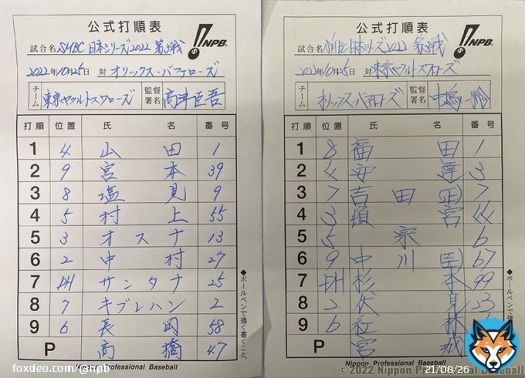 公式打順表
NPB
試合名 SMBC日本シリーズ2022 第3戦
2022年10月25日 対 オリックス・バファローズ
チーム 東京ヤクルトスワローズ 監督署名 高津臣吾
打順 位置 氏名 番号
1 4 山田 1
2 9 宮本 39
3 8 塩見 9
4 5 村上 55
5 3 オスナ 13
6 2 中村 27
7 DH サンタナ 25
8 7 キブレハン 2
9 6 長岡 58
P 高橋 47
ボールペンで強く書くこと。
Nippon Professional Baseball
公式打順表
NPB
試合名 SMBC日本シリーズ2022 第3戦
2022年10月25日 対 東京ヤクルトスワローズ
チーム オリックス・バファローズ 監督署名
打順 位置 氏名 番号
1 8 福田 1
2 4 安達 3
3 7 吉田正 7
4 3 頓宮 44
5 5 宗 6
6 9 中川圭 67
7 DH 杉本 99
8 2 伏見 23
9 6 紅林
P 宮城
ボールペンで強く書くこと。
Nippon Professional Baseball
foxdeo.com/@npb
©2022 Nippon Professional Baseball
21/08/26